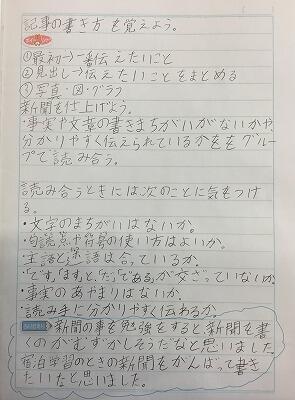 記事の書き方を覚えよう。
①最初→一番伝えたいこと
②見出し→伝えたいことをまとめる
③写真・図・グラフ
新聞を仕上げよう。
・事実や文章の書きまちがいがないかや、
分かりやすく伝えられているかををグルー
プで読み合う。
読み合うときには次のことに気をつけ
る。
・文字のまちがいはないか。
・句読点や符号の使い方はよいか。
・主語と述語は合っているか。
・「です、ます」と、「だ」「である」が交ざっていないか。
・事実のあやまりはないか。
・読み手に分かりやすく伝わるか。
新聞の事を勉強をすると新聞を書
くのがむずかしそうだなと思いました。
宿泊学習のときの新聞をがんばって書き
たいなと思いました。